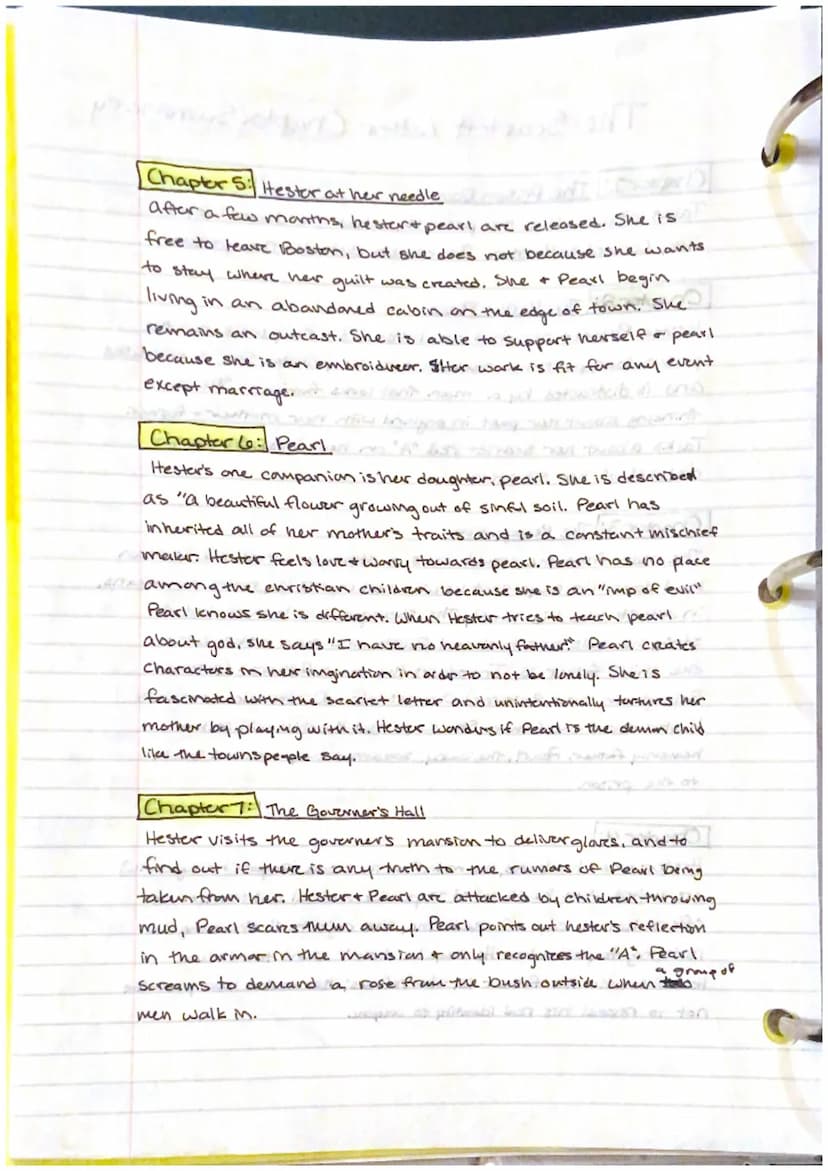 Chapter 5: Hester at her needle
after a few months, hester + pearl are released. She is
free to leave Boston, but she does not because she wants
to stay where her guilt was created. She + Pearl begin
living in an abandoned cabin on the edge of town. She
remains an outcast. She is able to support herself + pearl
because she is an embroiderer. Her work is fit for any event
except marriage.
Chapter 6: Pearl
Hester's one companion is her daughter, pearl. She is described
as "a beautiful flower growing out of sinful soil. Pearl has
inherited all of her mother's traits and is a constant mischief
maker. Hester feels love + worry towards pearl. Pearl has no place
among the christian children because she is an "imp of evil"
Pearl knows she is different. When Hester tries to teach pearl
about god, she says "I have no heavenly father!" Pearl creates
characters in her imagination in order to not be lonely. She is
fascinated with the scarlet letter and unintentionally tortures her
mother by playing with it. Hester wonders if Pearl is the demon child
like the townspeople say.
Chapter 7: The Governer's Hall
Hester visits the governer's mansion to deliver gloves, and to
find out if there is any truth to the rumors of Pearl being
taken from her. Hester + Pearl are attacked by children throwing
mud, Pearl scares them away. Pearl points out hester's reflection
in the armor in the mansion + only recognizes the "A". Pearl
screams to demand a rose from the bush outside when a group of
men walk in.